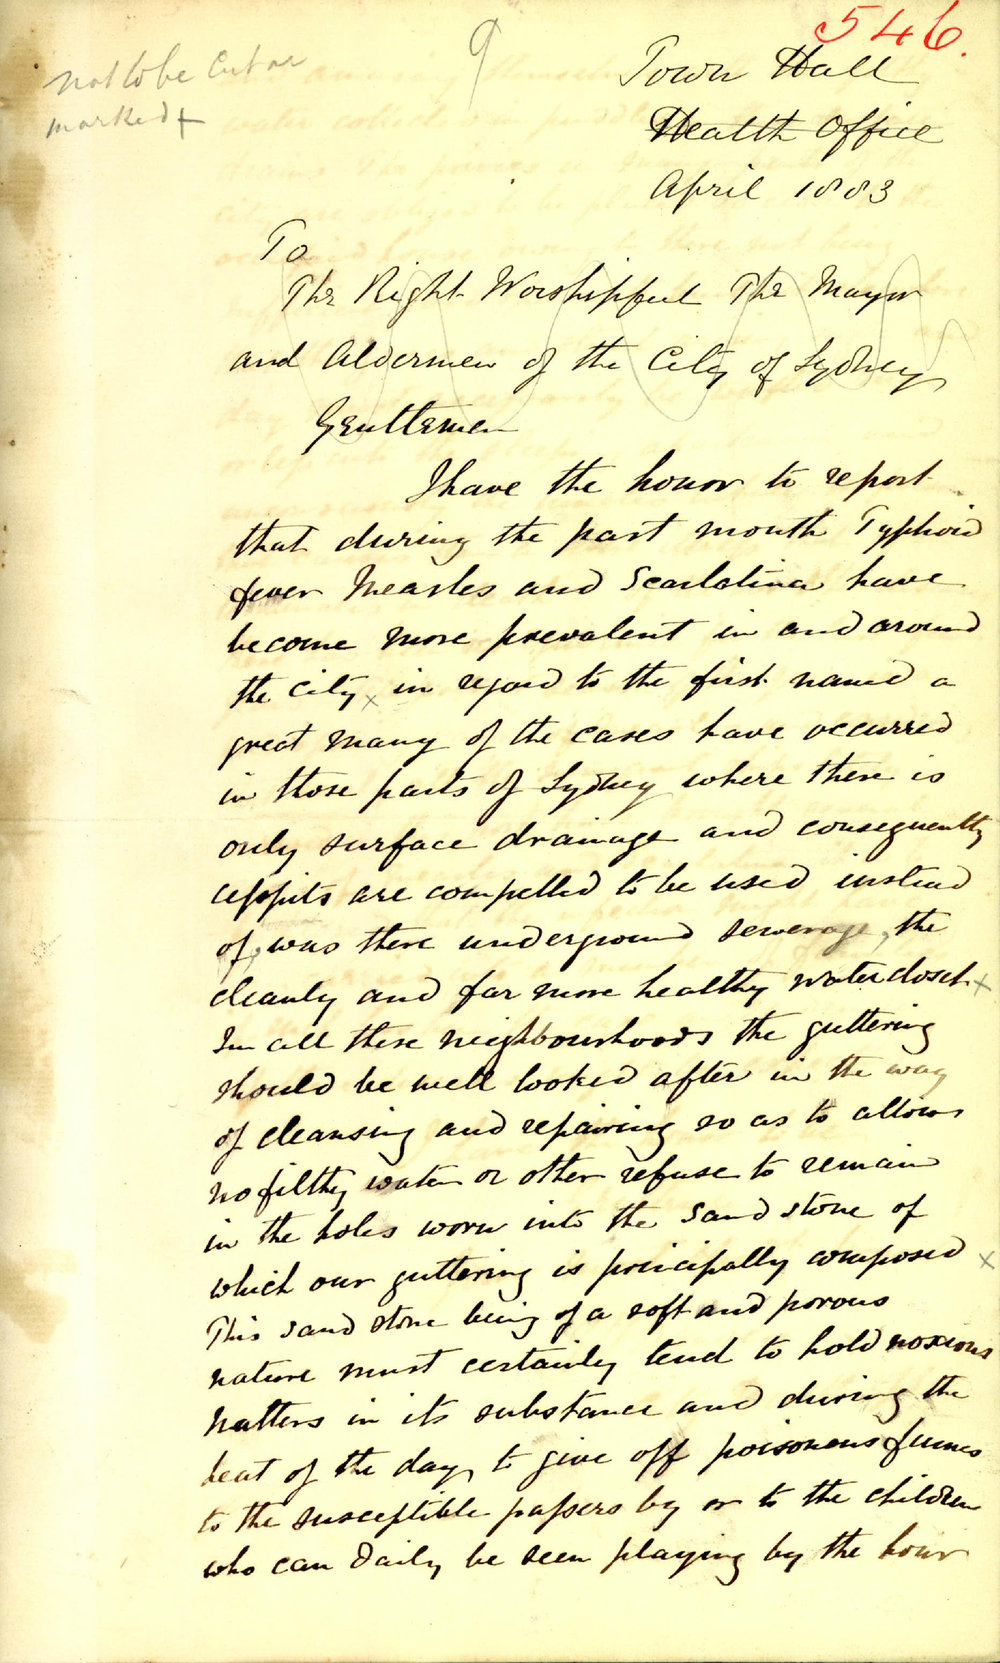 546.
9
not to be cut or
marked
Town Hall
Health Office
April 1883
To
The Right Worshipful The Mayor
and Aldermen of the City of Sydney
Gentlemen
I have the honor to report
that during the past month Typhoid
fever Measles and Scarlatina have
become more prevalent in and around
the city x in regard to the first named a
great many of the cases have occurred
in those parts of Sydney where there is
only surface drainage and consequently
cesspits are compelled to be used instead
of, was there underground sewerage, the
cleanly and far more healthy water closet x
In all these neighbourhoods the guttering
should be well looked after in the way
of cleansing and repairing so as to allow
no filthy water or other refuse to remain
in the holes worn into the sand stone of
which our guttering is principally composed x
This sand stone being of a soft and porous
nature must certainly tend to hold noxious
matters in its substance and during the
heat of the day, to give off poisonous fumes
to the susceptible passers by or to the children
who can daily be seen playing by the hour